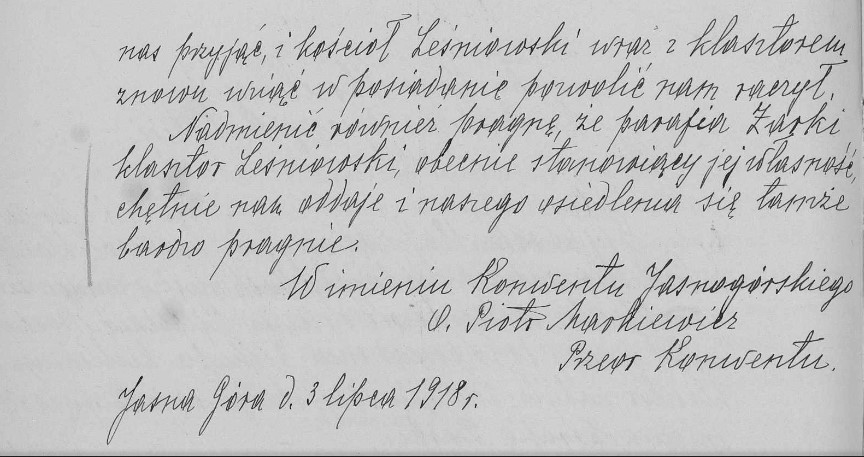 nas przyjąć, i kościół Leśniowski wraz z klasztorem
znowu wziąć w posiadanie pozwolić nam raczył.
Nadmienić również pragnę, że parafia Żarki
klasztor Leśniowski, obecnie stanowiący jej własność,
chętnie nam oddaje i naszego osiedlenia się tamże
bardzo pragnie.
W imieniu Konwentu Jasnogórskiego
O. Piotr Markiewicz
Przeor Konwentu.
Jasna Góra d. 3 lipca 1918 r.